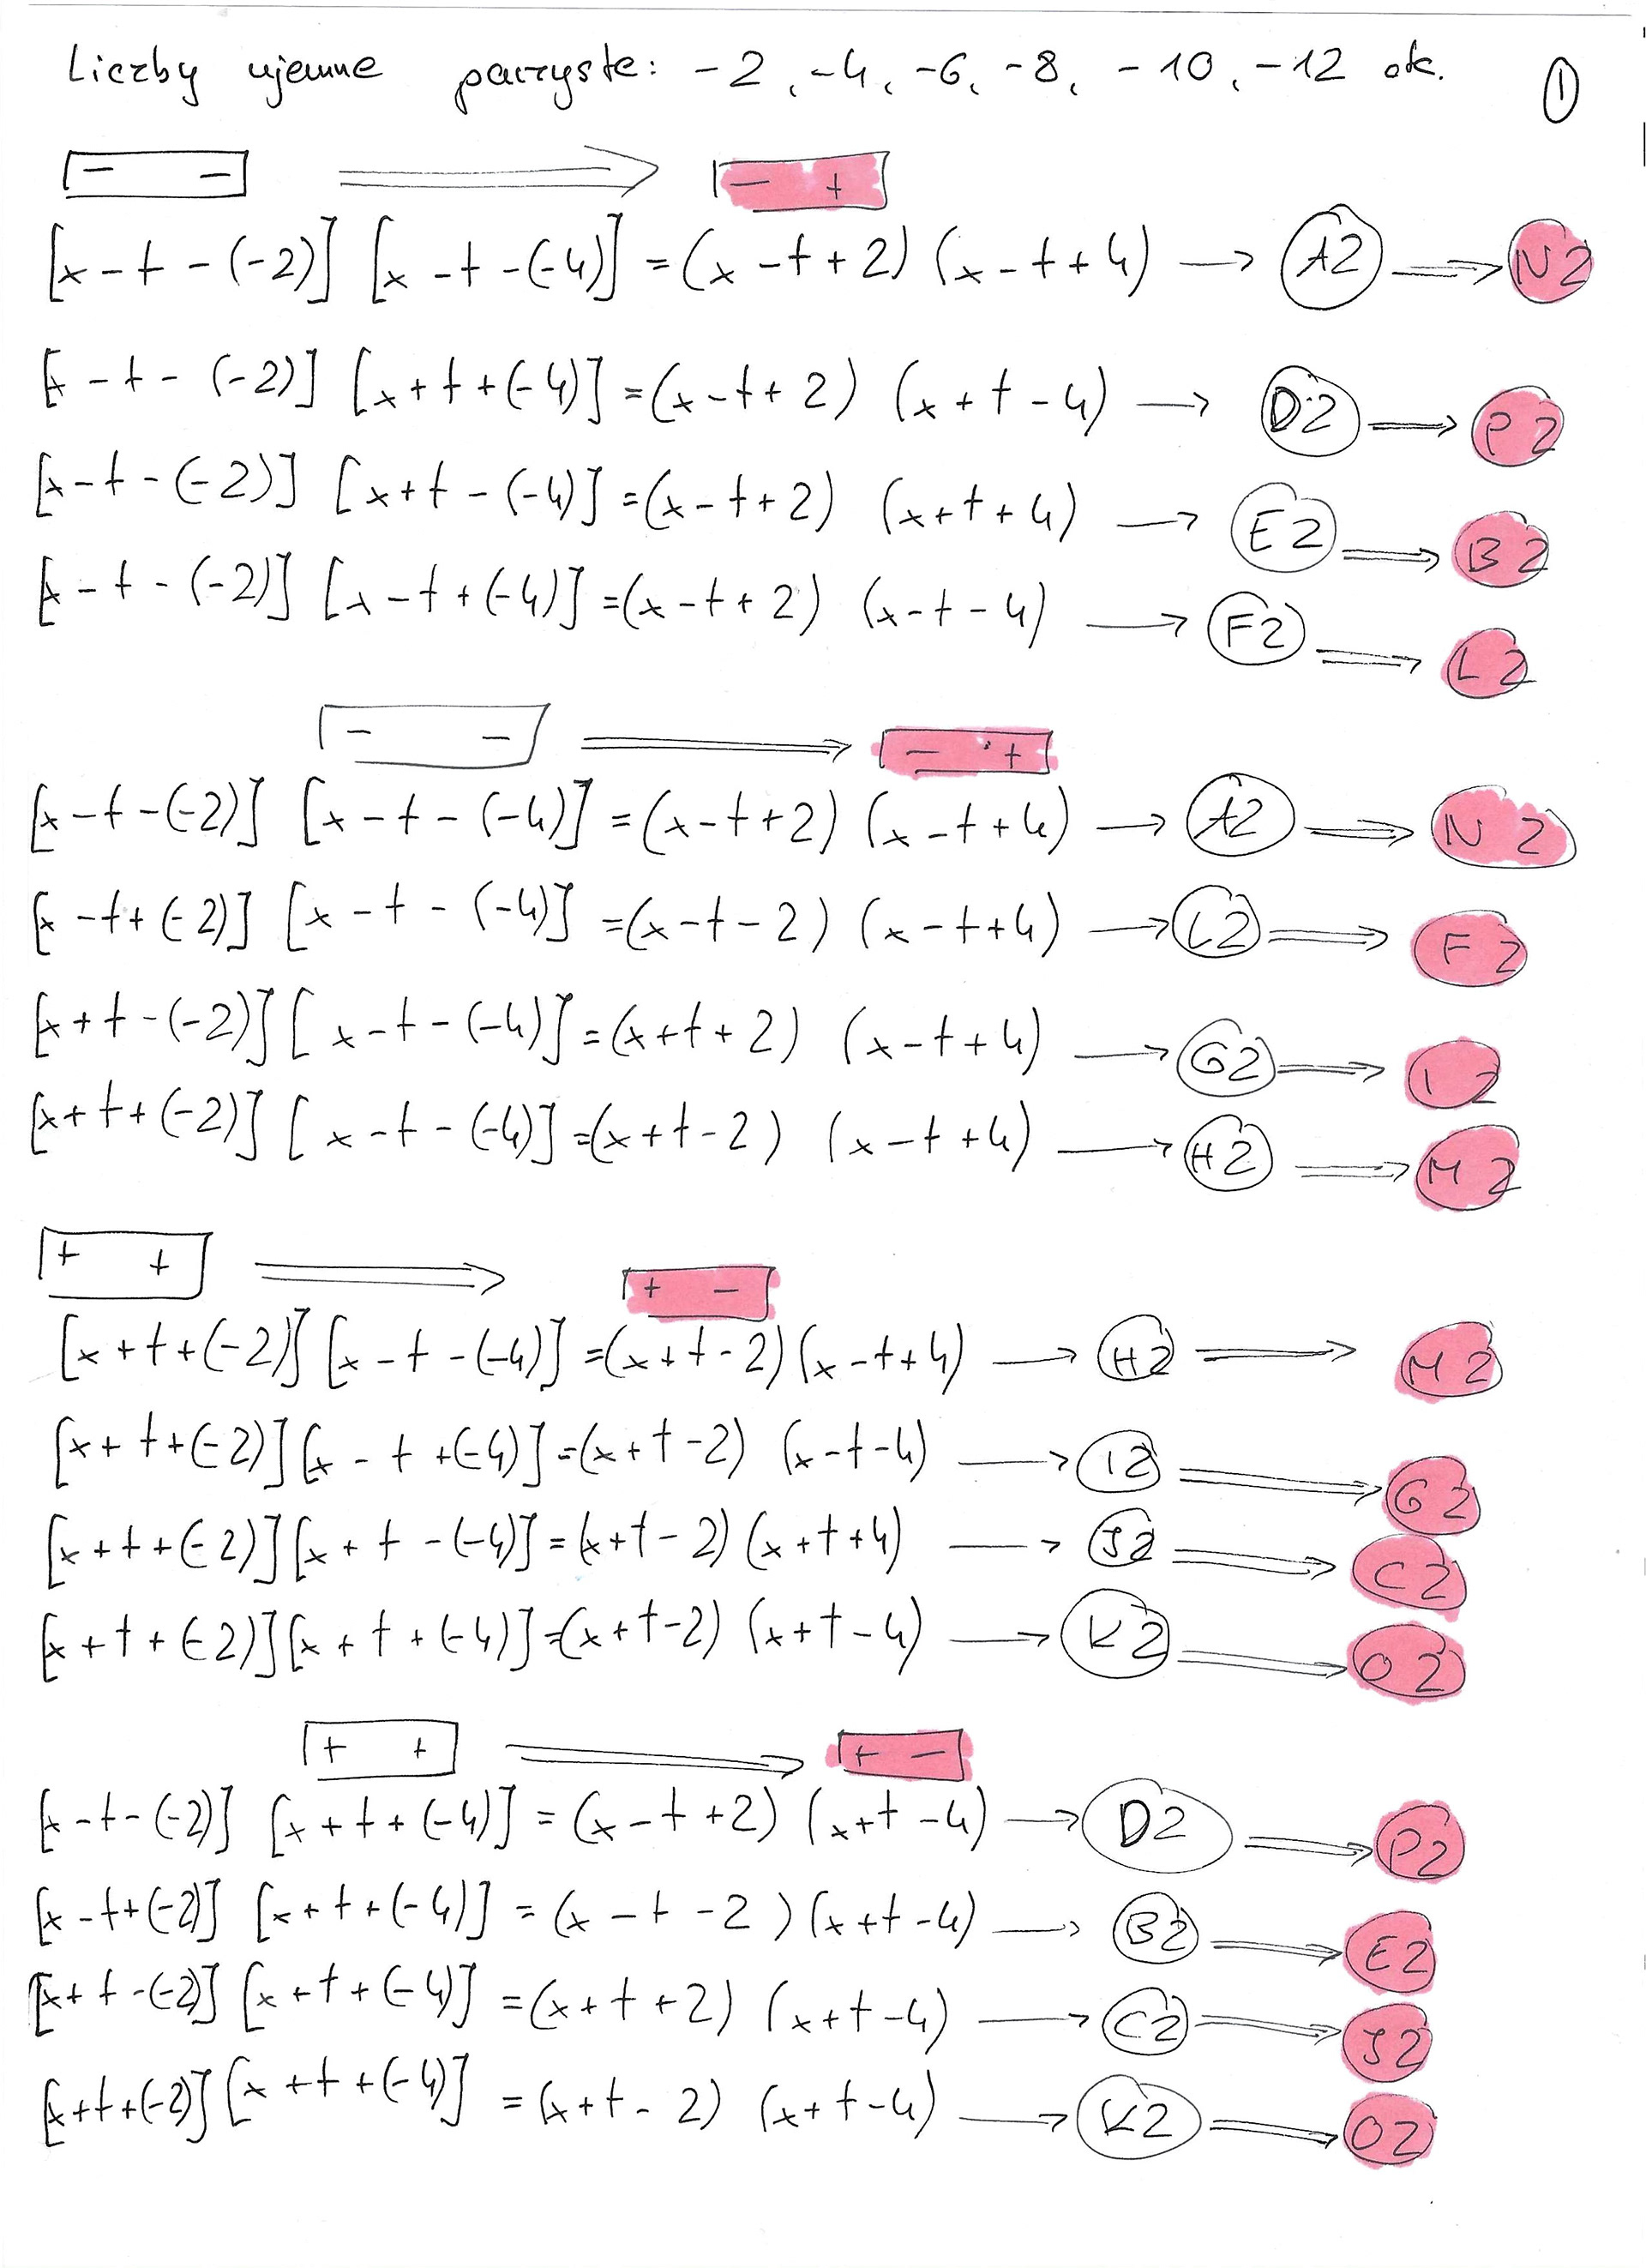 Liczby ujemne parzyste: -2, -4, -6, -8, -10, -12 ok. ①
- - ⟹ - +
[x-t-(-2)] [x-t-(-4)] = (x-t+2) (x-t+4) → A2 ⟹ N2
[x-t-(-2)] [x+t+(-4)] = (x-t+2) (x+t-4) → D2 ⟹ P2
[x-t-(-2)] [x+t-(-4)] = (x-t+2) (x+t+4) → E2 ⟹ B2
[x-t-(-2)] [x-t+(-4)] = (x-t+2) (x-t-4) → F2 ⟹ L2
- - ⟹ - +
[x-t-(-2)] [x-t-(-4)] = (x-t+2) (x-t+4) → A2 ⟹ N2
[x-t+(-2)] [x-t-(-4)] = (x-t-2) (x-t+4) → L2 ⟹ F2
[x+t-(-2)] [x-t-(-4)] = (x+t+2) (x-t+4) → G2 ⟹ I2
[x+t+(-2)] [x-t-(-4)] = (x+t-2) (x-t+4) → H2 ⟹ M2
+ + ⟹ + -
[x+t+(-2)] [x-t-(-4)] = (x+t-2) (x-t+4) → H2 ⟹ M2
[x+t+(-2)] [x-t+(-4)] = (x+t-2) (x-t-4) → I2 ⟹ G2
[x+t+(-2)] [x+t-(-4)] = (x+t-2) (x+t+4) → J2 ⟹ C2
[x+t+(-2)] [x+t+(-4)] = (x+t-2) (x+t-4) → K2 ⟹ O2
+ + ⟹ + -
[x-t-(-2)] [x+t+(-4)] = (x-t+2) (x+t-4) → D2 ⟹ P2
[x-t+(-2)] [x+t+(-4)] = (x-t-2) (x+t-4) → B2 ⟹ E2
[x+t-(-2)] [x+t+(-4)] = (x+t+2) (x+t-4) → C2 ⟹ J2
[x+t+(-2)] [x+t+(-4)] = (x+t-2) (x+t-4) → K2 ⟹ O2